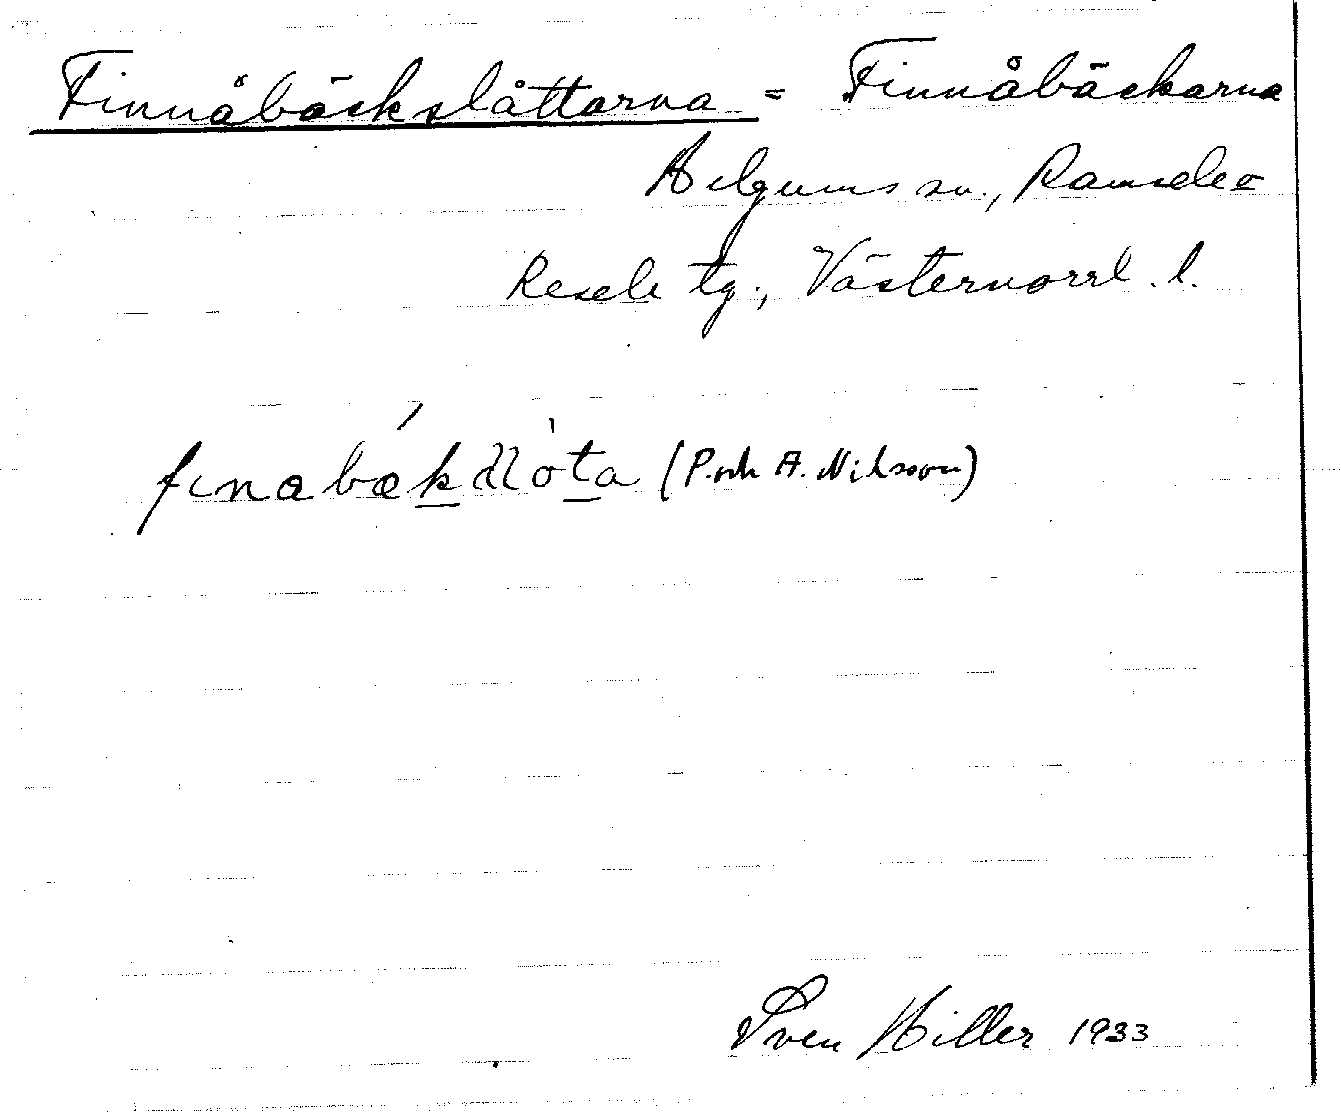 Finnåbäckslåttarna = Finnåbäckarna
Helgums sn., Ramsele o
Resele tg., Västernorrl. l.
finabækslòta (P. och A. Nilsson)
Sven Hiller 1933